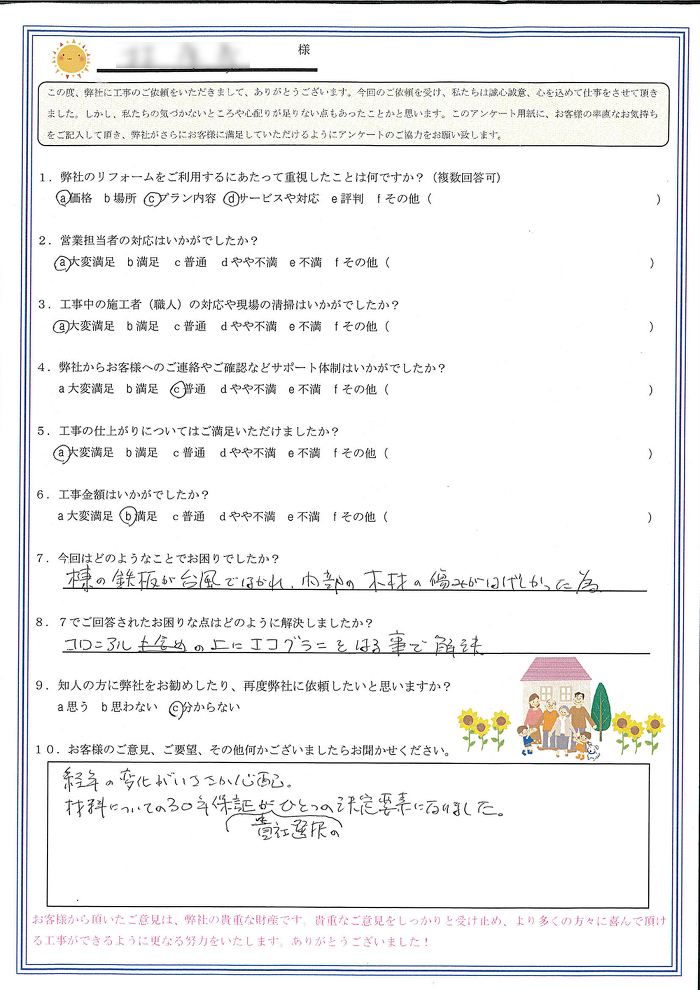 様
この度、弊社に工事のご依頼をいただきまして、ありがとうございます。今回のご依頼を受け、私たちは誠心誠意、心を込めて仕事をさせて頂き
ました。しかし、私たちの気づかないところや心配りが足りない点もあったことかと思います。このアンケート用紙に、お客様の率直なお気持ち
をご記入して頂き、弊社がさらにお客様に満足していただけるようにアンケートのご協力をお願い致します。
1．弊社のリフォームをご利用するにあたって重視したことは何ですか？（複数回答可）
a 価格 b 場所 c プラン内容 d サービスや対応 e 評判 f その他（ ）
2．営業担当者の対応はいかがでしたか？
a 大変満足 b 満足 c 普通 d やや不満 e 不満 f その他（ ）
3．工事中の施工者（職人）の対応や現場の清掃はいかがでしたか？
a 大変満足 b 満足 c 普通 d やや不満 e 不満 f その他（ ）
4．弊社からお客様へのご連絡やご確認などサポート体制はいかがでしたか？
a 大変満足 b 満足 c 普通 d やや不満 e 不満 f その他（ ）
5．工事の仕上がりについてはご満足いただけましたか？
a 大変満足 b 満足 c 普通 d やや不満 e 不満 f その他（ ）
6．工事金額はいかがでしたか？
a 大変満足 b 満足 c 普通 d やや不満 e 不満 f その他（ ）
7．今回はどのようなことでお困りでしたか？
棟の鉄板が台風ではがれ、内部の木材の傷みがはげしかった為
8．7でご回答されたお困りな点はどのように解決しましたか？
コロニアルも含めの上にエコグラニをはる事で解決
9．知人の方に弊社をお勧めしたり、再度弊社に依頼したいと思いますか？
a 思う b 思わない c 分からない
10．お客様のご意見、ご要望、その他何かございましたらお聞かせください。
経年の変化がいささか心配。
材料についての30年保証がひとつの決定要素になりました。
貴社選択の
お客様から頂いたご意見は、弊社の貴重な財産です。貴重なご意見をしっかりと受け止め、より多くの方々に喜んで頂け
る工事ができるように更なる努力をいたします。ありがとうございました！